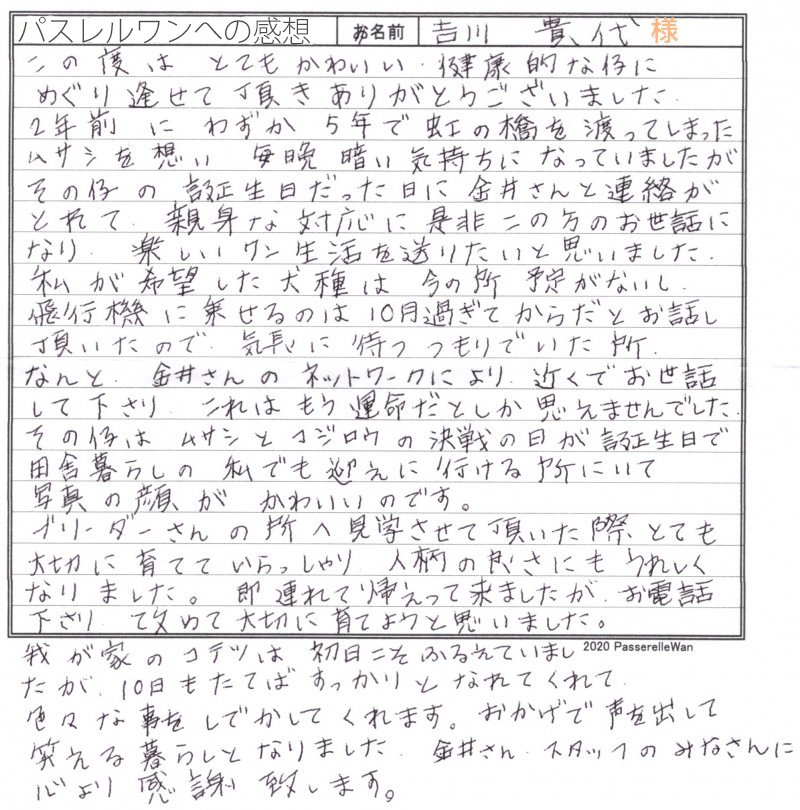 パスレルワンへの感想 お名前 吉川 貴代 様
この度は とてもかわいい 健康的な仔に
めぐり逢せて頂きありがとうございました.
2年前 に わずか 5年で虹の橋を渡ってしまった
ムサシを想い 毎晩暗い気持ちになっていましたが
その仔の 誕生日だった日に 金井さんと連絡が
とれて. 親身な対応に是非この方のお世話に
なり. 楽しいワン生活を送りたいと思いました.
私が希望した犬種は 今の所 予定がないし.
飛行機に乗せるのは10月過ぎてからだとお話し
頂いたので. 気長に待つつもりでいた所.
なんと. 金井さんのネットワークにより. 近くでお世話
して下さり. これはもう運命だとしか思えませんでした.
その仔は ムサシとコジロウの決戦の日が誕生日で
田舎暮らしの 私でも迎えに行ける所にいて
写真の顔が かわいいのです。
ブリーダーさんの所へ見学させて頂いた際. とても
大切に育てていらっしゃり. 人柄の良さにもうれしく
なりました。 即連れて帰えって来ましたが. お電話
下さり. 改めて大切に育てようと思いました。
2020 PasserelleWan
我が家のコテツは 初日こそふるえていまし
たが. 10日もたてば すっかりと なれてくれて.
色々な事をしでかしてくれます。おかげで声を出して
笑える暮らしとなりました. 金井さん. スタッフのみなさんに
心より感謝致します。